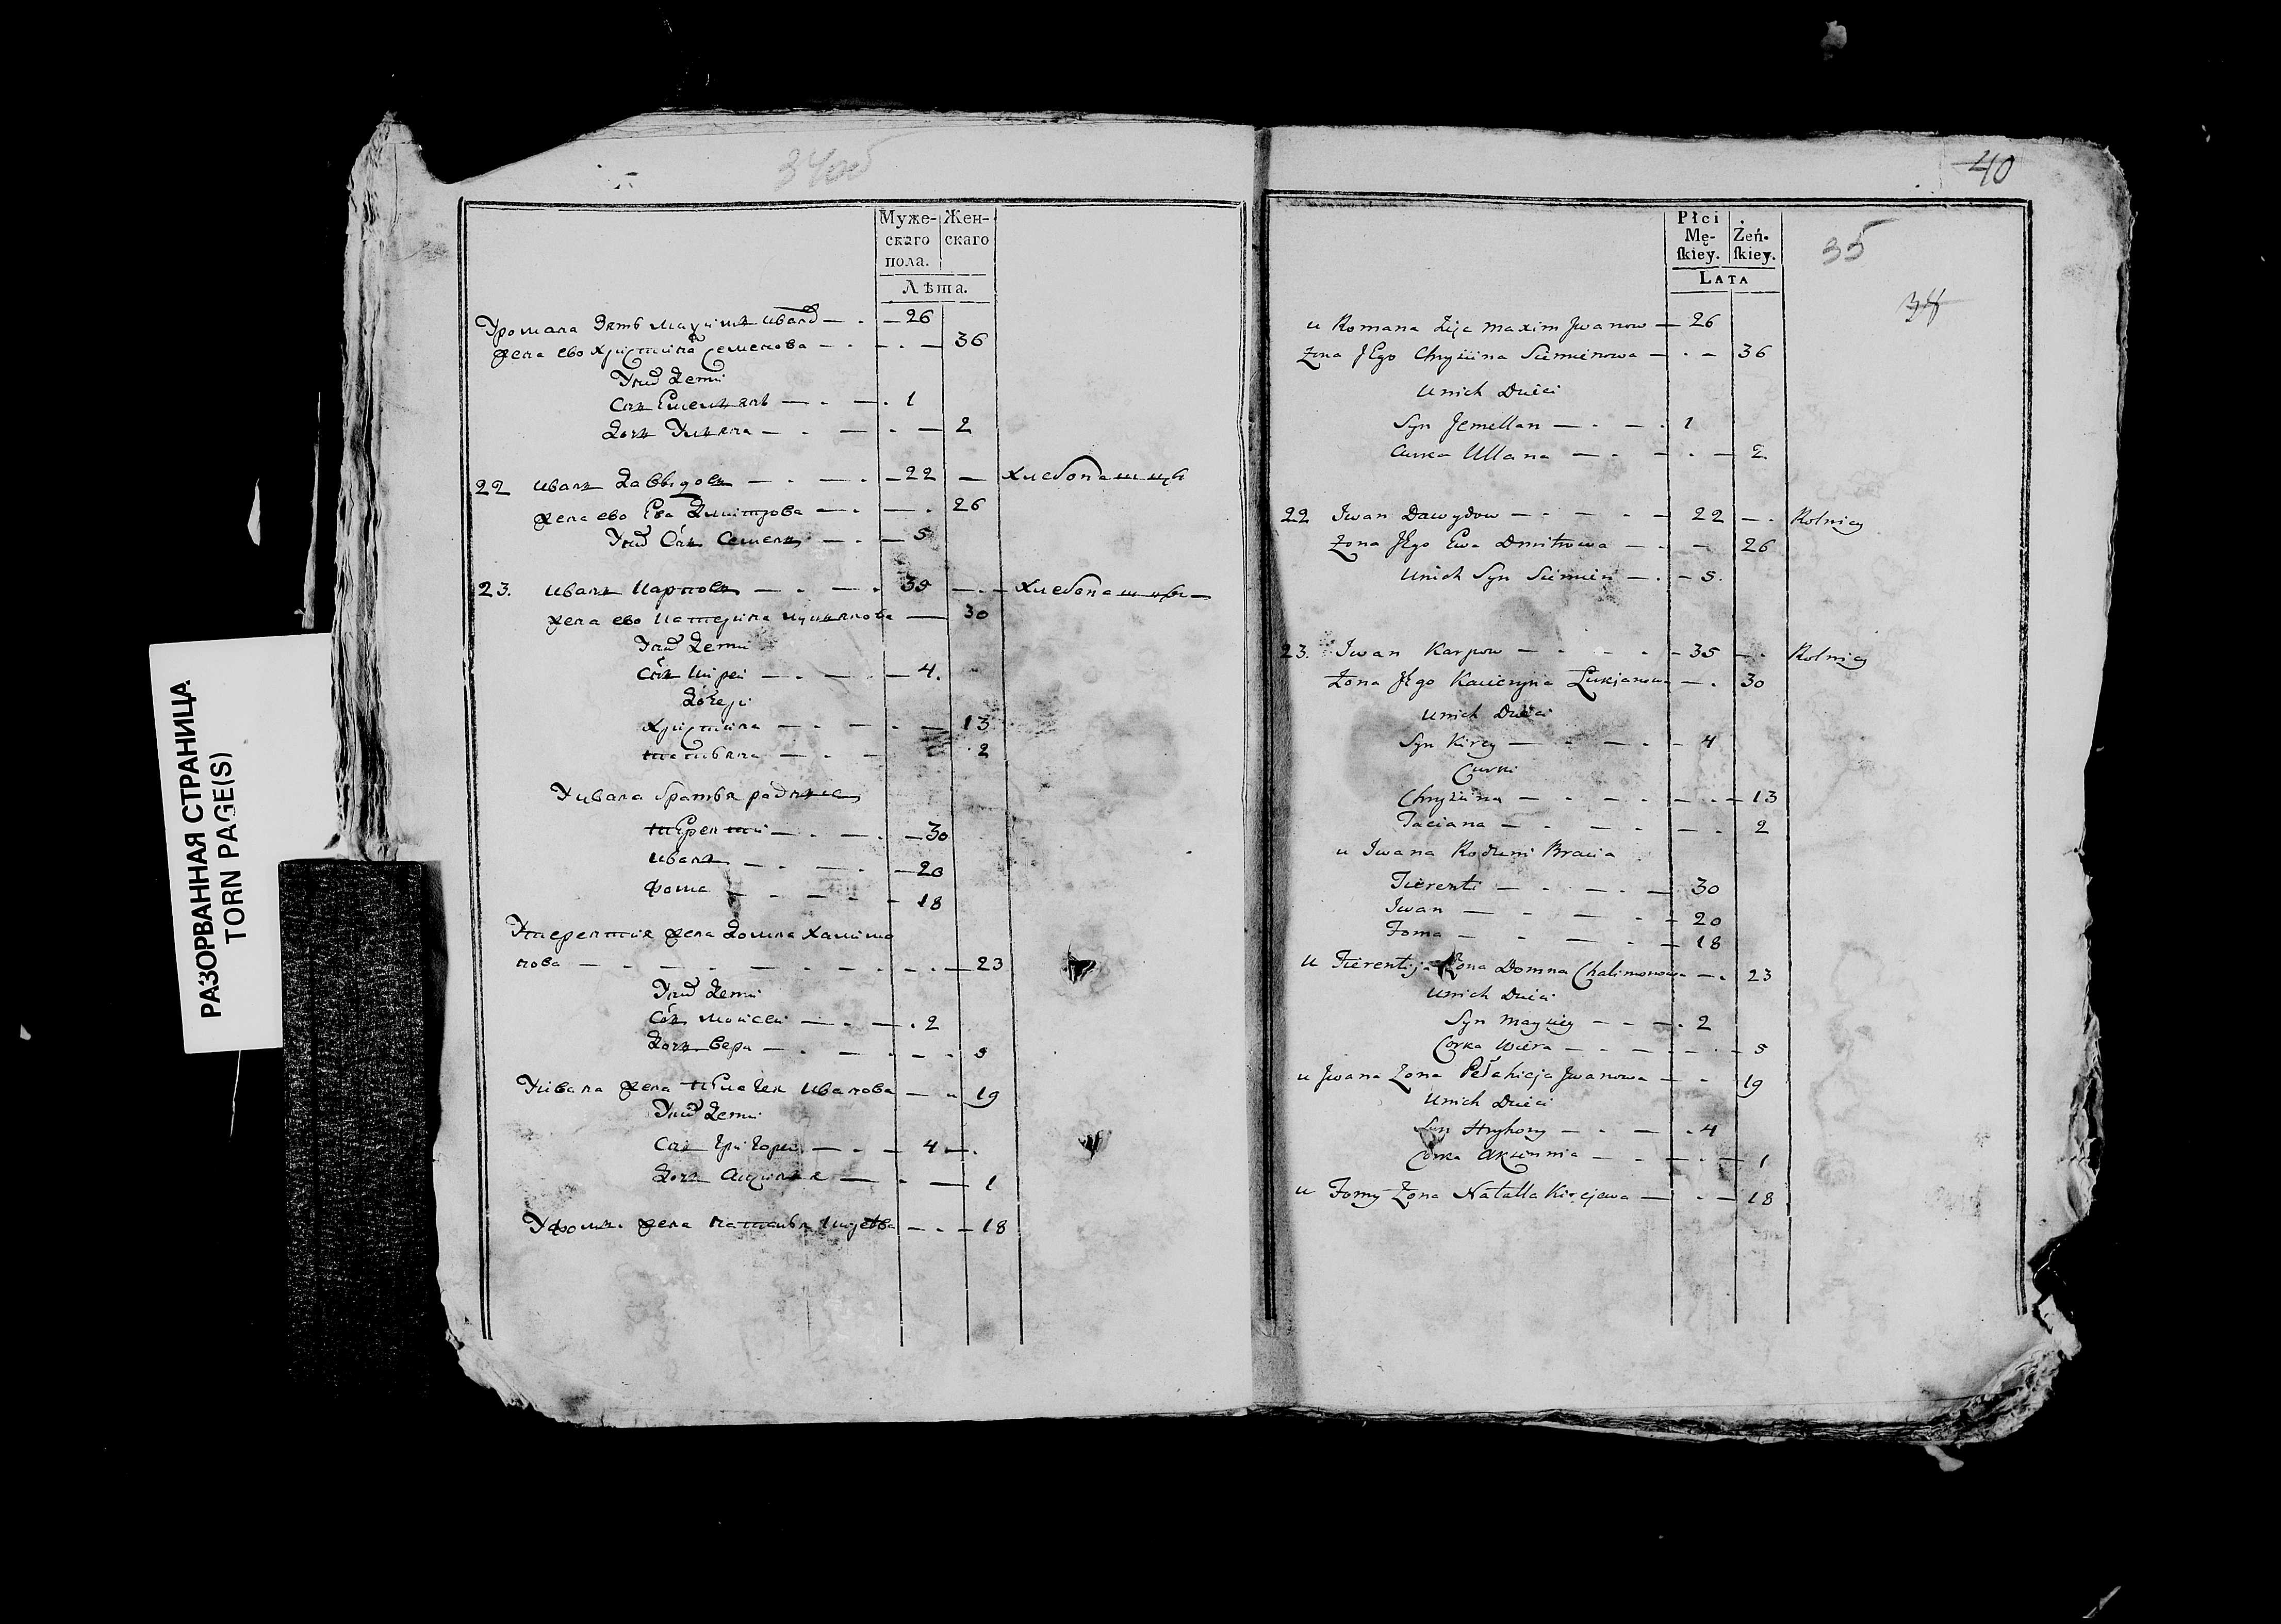 РАЗОРВАННАЯ СТРАНИЦА
TORN PAGE(S)
34об
Муже- Жен-
скаго скаго
пола.
Лѣта.
Уромана Зять Махимъ Иванов 26
Жена ево Христина Семенова 36
Уних Дети
Сын Емельянъ 1
Дочь Ульяна 2
22 Иванъ Давыдовъ 22 Хлебопашцы
Жена ево Ева Дмитрова 26
Уних Сын Семенъ 5
23. Иванъ Карповъ 35 Хлебопашцы
Жена ево Катерина Лукьянова 30
Уних Дети
Сын Кирей 4.
Дочери
Христина 13
Татьяна 2
Уивана братья родные
Терентий 30
Иванъ 20
Фома 18
Утерентия Жена Домна Халимо
нова 23
Уних Дети
Сын Моисей 2
Дочь Вера 5
Уивана Жена Иванова 19
Уних Дети
Сын Григорей 4
Дочь Аксинья 1
Уфомы Жена Наталья Киреева 18
40
35
34
Płci
Mę- Żeń-
ſkiey. ſkiey.
LATA
u Romana Zijc Maxim Jwanow 26
Zona JEgo Chrysiina Siemienowa 36
Unich Dzieci
Syn Jemillan 1
Curka Ullana 2
22 Iwan Dawydow 22 Rolnicy
Zona JEgo Ewa Dmitrowa 26
Unich Syn Siemien 5.
23. Iwan Karpow 35 Rolnicy
Zona JEgo Kacieryna Łukjanowa 30
Unich Dzieci
Syn Kirey 4
Curki
Chrysiina 13
Taciana 2
u Iwana Rodzeni Bracia
Tierenti 30
Iwan 20
Foma 18
u Tierentija Zona Domna Chalimonowa 23
Unich Dzieci
Syn Maysiey 2
Corka Wiera 5
u Jwana Zona Pełahieja Jwanowa 19
Unich Dzieci
Syn Hryhory 4
Corka Aksiennia 1
u Fomy Zona Natalla Kirejewa 18